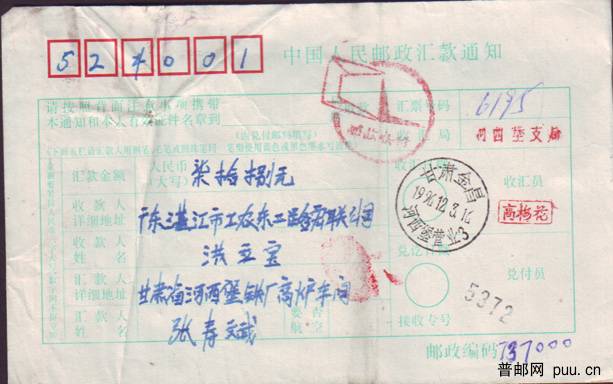 524001
中国人民邮政汇款通知
请按照背面注意事项携带
本通知和本人有效证件名章到
(由兑付邮局填写)
汇票号码 6195
河西堡支局
汇款金额
人民币
(大写) 柒拾捌元
收汇员
高梅花
收款人
详细地址
广东湛江市工农东二路
收款人
姓名
洪立宝
甘肃金昌
1996.12.3.16
河西堡营业3
兑付员
汇款人
详细地址
甘肃省河西堡铁厂高炉车间
5372
汇款人
姓名
张寿斌
接收专号
邮政编码 737000
普邮网 puu.cn